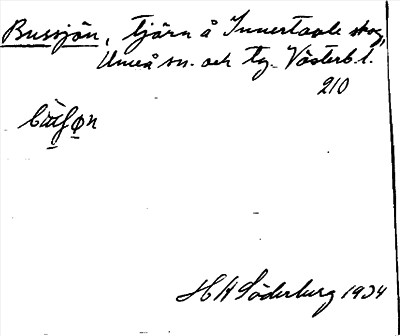 Bussjön, tjärn å Innertavle skog,
Umeå sn. och tg. Västerb. l.
210
H A Söderberg 1934